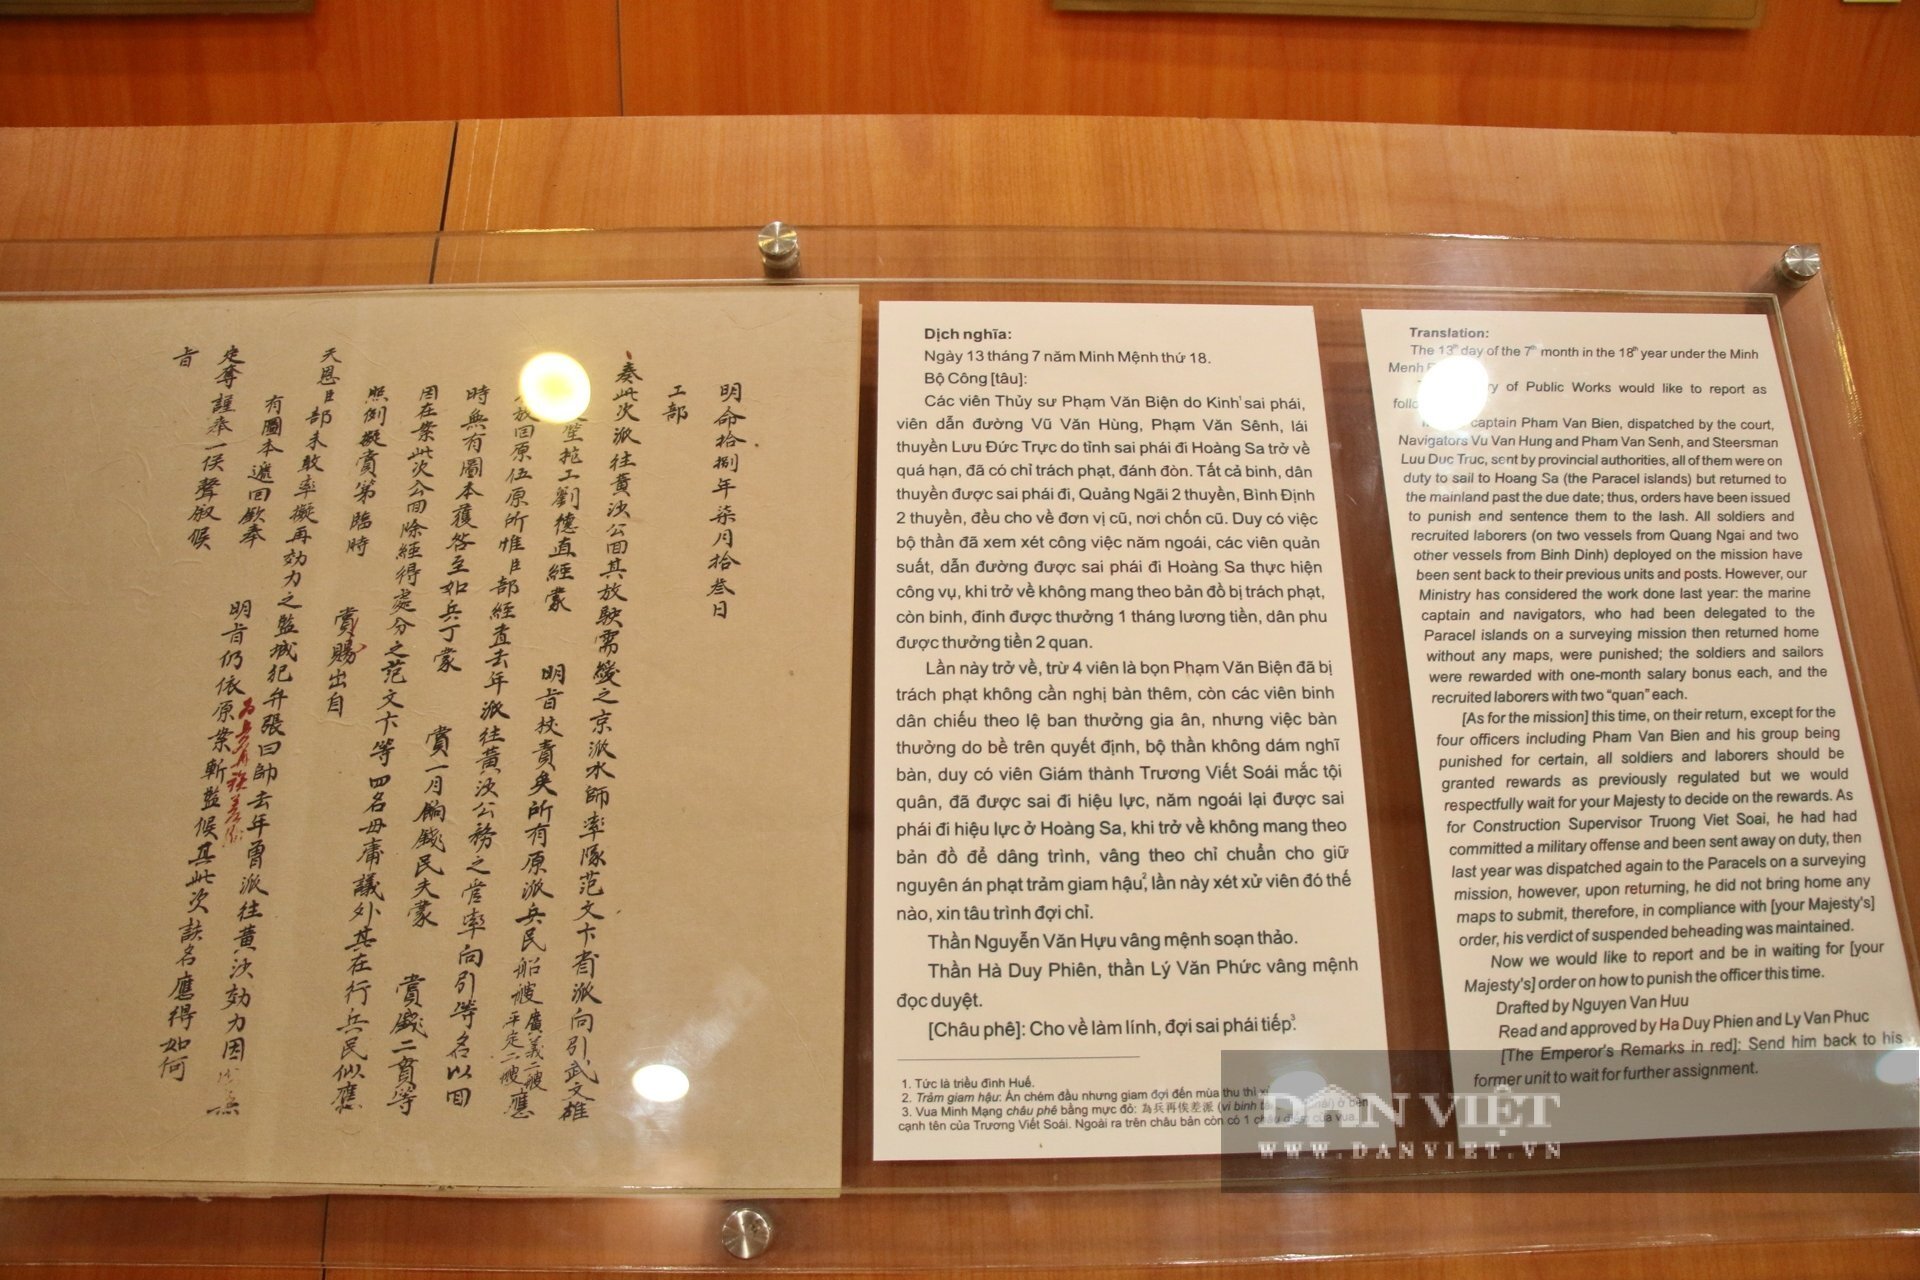 明命拾捌年柒月拾叁日
工部
奏此次派往黄沙公回其放駛需緩之京派水師率隊范文卞省派向引武文雄
生挓工劉德直經蒙
明旨杖責矣所有原派兵民船艘廣義二艘平定二艘應
放回原伍原所惟臣部經查去年派往黄沙公務之管率向引等名以回
時無有圖本獲咎至如兵丁蒙
賞一月餉錢民夫蒙
賞錢二貫等
因在案此次公回除經得處分之范文卞等四名毋庸議外其在行兵民似應
照例擬賞第臨時
賞賜出自
天恩臣部未敢率擬再効力之監城犯弁張曰帥去年曾派往黄沙効力因無
有圖本遞回欽奉
明旨仍依原案斬監候其此次該名應得如何
定奪謹奉一侯聲敘候
旨
Dịch nghĩa:
Ngày 13 tháng 7 năm Minh Mệnh thứ 18.
Bộ Công [tâu]:
Các viên Thủy sư Phạm Văn Biện do Kinh¹ sai phái,
viên dẫn đường Vũ Văn Hùng, Phạm Văn Sênh, lái
thuyền Lưu Đức Trực do tỉnh sai phái đi Hoàng Sa trở về
quá hạn, đã có chỉ trách phạt, đánh đòn. Tất cả binh, dân
thuyền được sai phái đi, Quảng Ngãi 2 thuyền, Bình Định
2 thuyền, đều cho về đơn vị cũ, nơi chốn cũ. Duy có việc
bộ thần đã xem xét công việc năm ngoái, các viên quản
suất, dẫn đường được sai phái đi Hoàng Sa thực hiện
công vụ, khi trở về không mang theo bản đồ bị trách phạt,
còn binh, đinh được thưởng 1 tháng lương tiền, dân phu
được thưởng tiền 2 quan.
Lần này trở về, trừ 4 viên là bọn Phạm Văn Biện đã bị
trách phạt không cần nghị bàn thêm, còn các viên binh
dân chiếu theo lệ ban thưởng gia ân, nhưng việc bàn
thưởng do bề trên quyết định, bộ thần không dám nghĩ
bàn, duy có viên Giám thành Trương Viết Soái mắc tội
quân, đã được sai đi hiệu lực, năm ngoái lại được sai
phái đi hiệu lực ở Hoàng Sa, khi trở về không mang theo
bản đồ để dâng trình, vâng theo chỉ chuẩn cho giữ
nguyên án phạt trảm giam hậu², lần này xét xử viên đó thế
nào, xin tâu trình đợi chỉ.
Thần Nguyễn Văn Hựu vâng mệnh soạn thảo.
Thần Hà Duy Phiên, thần Lý Văn Phức vâng mệnh
đọc duyệt.
[Châu phê]: Cho về làm lính, đợi sai phái tiếp³.
1. Tức là triều đình Huế.
2. Trảm giam hậu: Án chém đầu nhưng giam đợi đến mùa thu thì
3. Vua Minh Mạng châu phê bằng mực đỏ: 為兵再俟差派 (vi binh ở bên
cạnh tên của Trương Viết Soái. Ngoài ra trên châu bản còn có 1 của vua.
Translation:
The 13th day of the 7th month in the 18th year under the Minh
Menh
of Public Works would like to report as
captain Pham Van Bien, dispatched by the court,
Navigators Vu Van Hung and Pham Van Senh, and Steersman
Luu Duc Truc, sent by provincial authorities, all of them were on
duty to sail to Hoang Sa (the Paracel islands) but returned to
the mainland past the due date; thus, orders have been issued
to punish and sentence them to the lash. All soldiers and
recruited laborers (on two vessels from Quang Ngai and two
other vessels from Binh Dinh) deployed on the mission have
been sent back to their previous units and posts. However, our
Ministry has considered the work done last year: the marine
captain and navigators, who had been delegated to the
Paracel islands on a surveying mission then returned home
without any maps, were punished; the soldiers and sailors
were rewarded with one-month salary bonus each, and the
recruited laborers with two “quan” each.
[As for the mission] this time, on their return, except for the
four officers including Pham Van Bien and his group being
punished for certain, all soldiers and laborers should be
granted rewards as previously regulated but we would
respectfully wait for your Majesty to decide on the rewards. As
for Construction Supervisor Truong Viet Soai, he had had
committed a military offense and been sent away on duty, then
last year was dispatched again to the Paracels on a surveying
mission, however, upon returning, he did not bring home any
maps to submit, therefore, in compliance with [your Majesty's]
order, his verdict of suspended beheading was maintained.
Now we would like to report and be in waiting for [your
Majesty's] order on how to punish the officer this time.
Drafted by Nguyen Van Huu
Read and approved by Ha Duy Phien and Ly Van Phuc
[The Emperor's Remarks in red]: Send him back to his
former unit to wait for further assignment.
DÂN VIỆT
WWW.DANVIET.VN